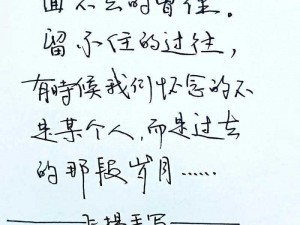 回不去的曾经。
留不住的过往，
有時候我们怀念的不
是某个人，而是过去
的那段岁月……